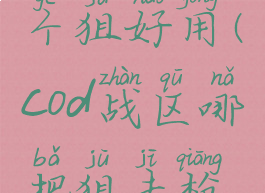 gè jū hǎo yòng
个狙好用(
zhàn qū nǎ
cod战区哪
bǎ jū jī qiāng
把狙击枪